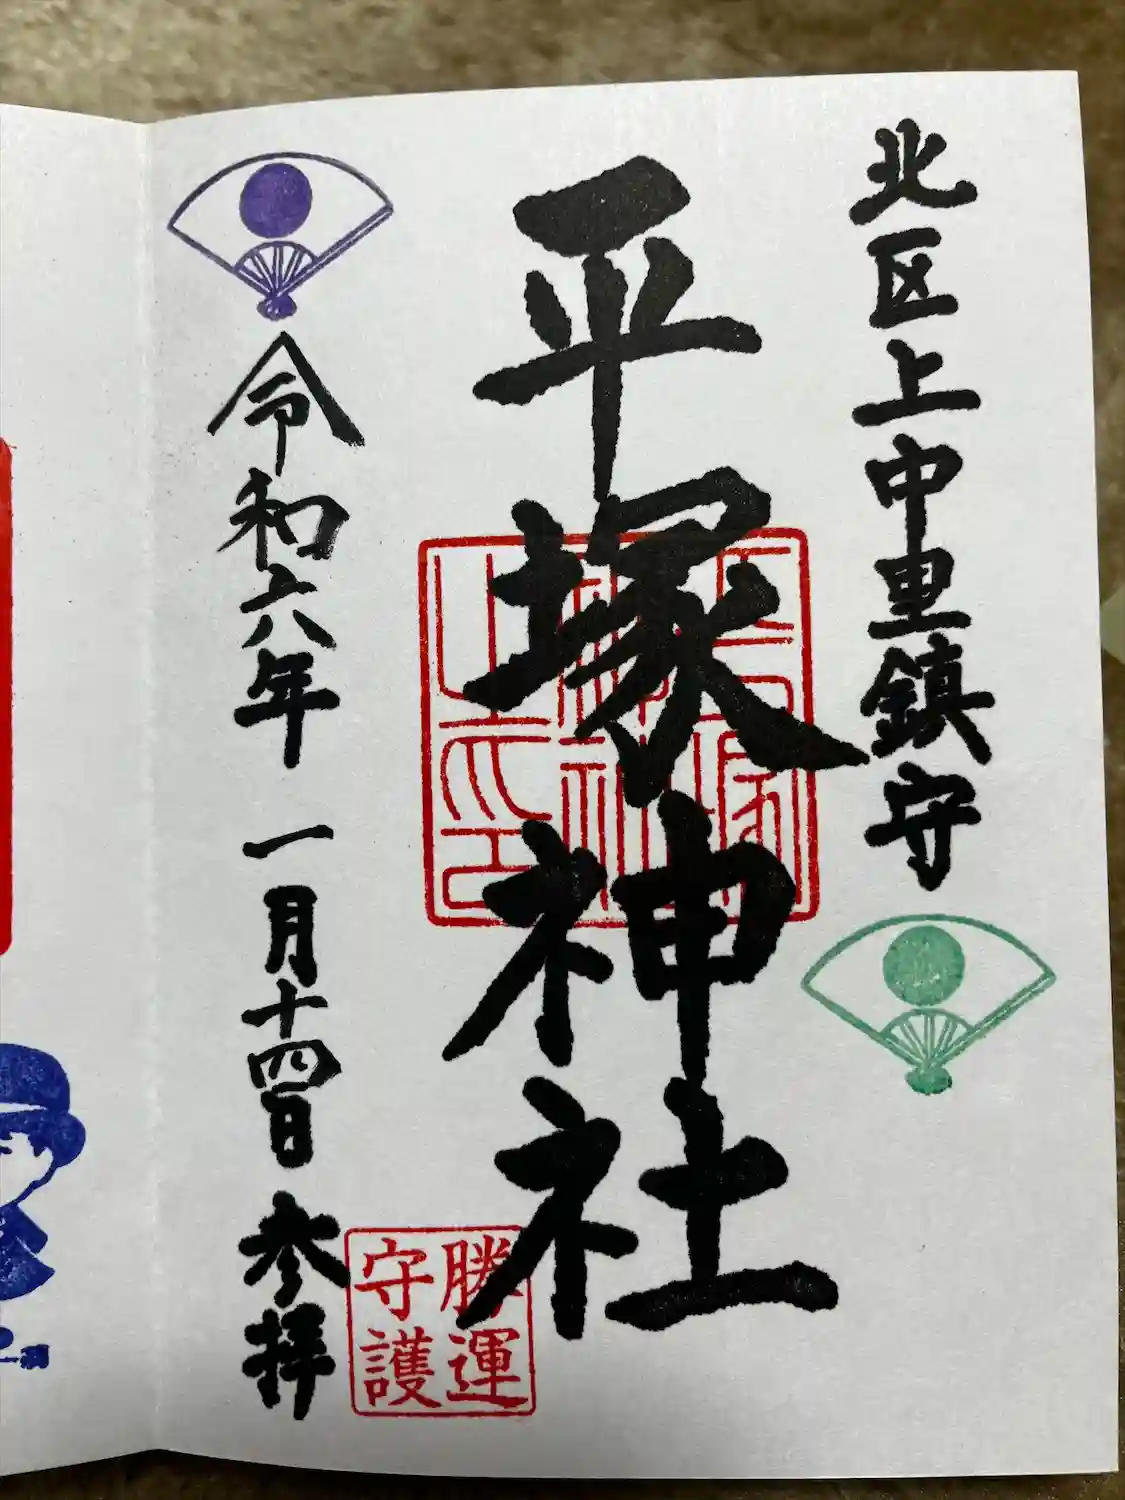 北区上中里鎮守
平塚神社
平塚神社之印
勝運
守護
令和六年 一月十四日 参拝